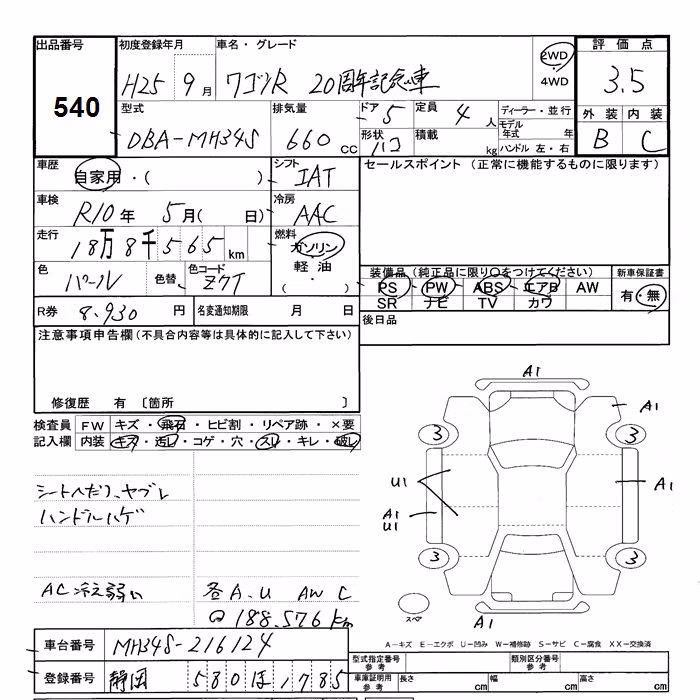 出品番号 初度登録年月 車名・グレード 2WD 4WD 評価点
540 H25 9月 ワゴンR 20周年記念車 3.5
型式 排気量 ドア 5 定員 4人 ディーラー・並行 外装 内装
DBA-MH34S 660cc 形状 ハコ 積載 kg モデル年式 年 B C
ハンドル 左・右
車歴 自家用・( ) シフト IAT セールスポイント (正常に機能するものに限ります)
車検 R10年 5月( 日) 冷房 AAC
走行 18万8千565km 燃料 ガソリン
軽油
( )
色 パール 色替 色コード Z7T
装備品 (純正品に限り○をつけてください) 新車保証書
PS PW ABS エアB AW 有・無
SR ナビ TV カワ
R券 8.930円 名変通知期限 月 日 後日品
注意事項申告欄 (不具合内容等は具体的に記入して下さい)
修復歴 有 〔箇所 〕
検査員 FW キズ・飛石・ヒビ割・リペア跡・×要
記入欄 内装 キズ・汚レ・コゲ・穴・スレ・キレ・破レ
シートヘタリ、ヤブレ
ハンドルハゲ
AC冷え弱い 各A.U AW C
188.576km
A1
A1
3 3
U1 A1
A1
U1
3 3
スペア A1
A-キズ E-エクボ U-凹み W-補修跡 S-サビ C-腐食 XX-交換済
車台番号 MH34S-216124
登録番号 静岡 580 ほ 1785
型式指定番号 参考 類別区分番号 参考
車庫証明用 参考 長さ cm 幅 cm 高さ cm